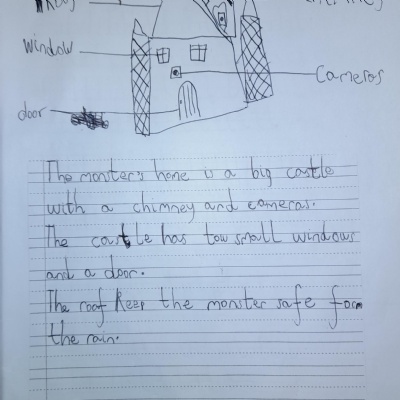 Roof
chimney
window
Cameras
door
The monster's home is a big castle
with a chimney and cameras.
The castle has tow small windows
and a door.
The roof Keep the monster safe form
the rain.